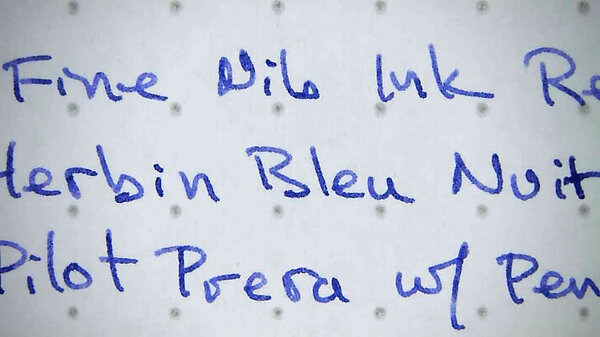 Fine Nib Ink Re
Herbin Bleu Nuit
Pilot Prera w/ Pen